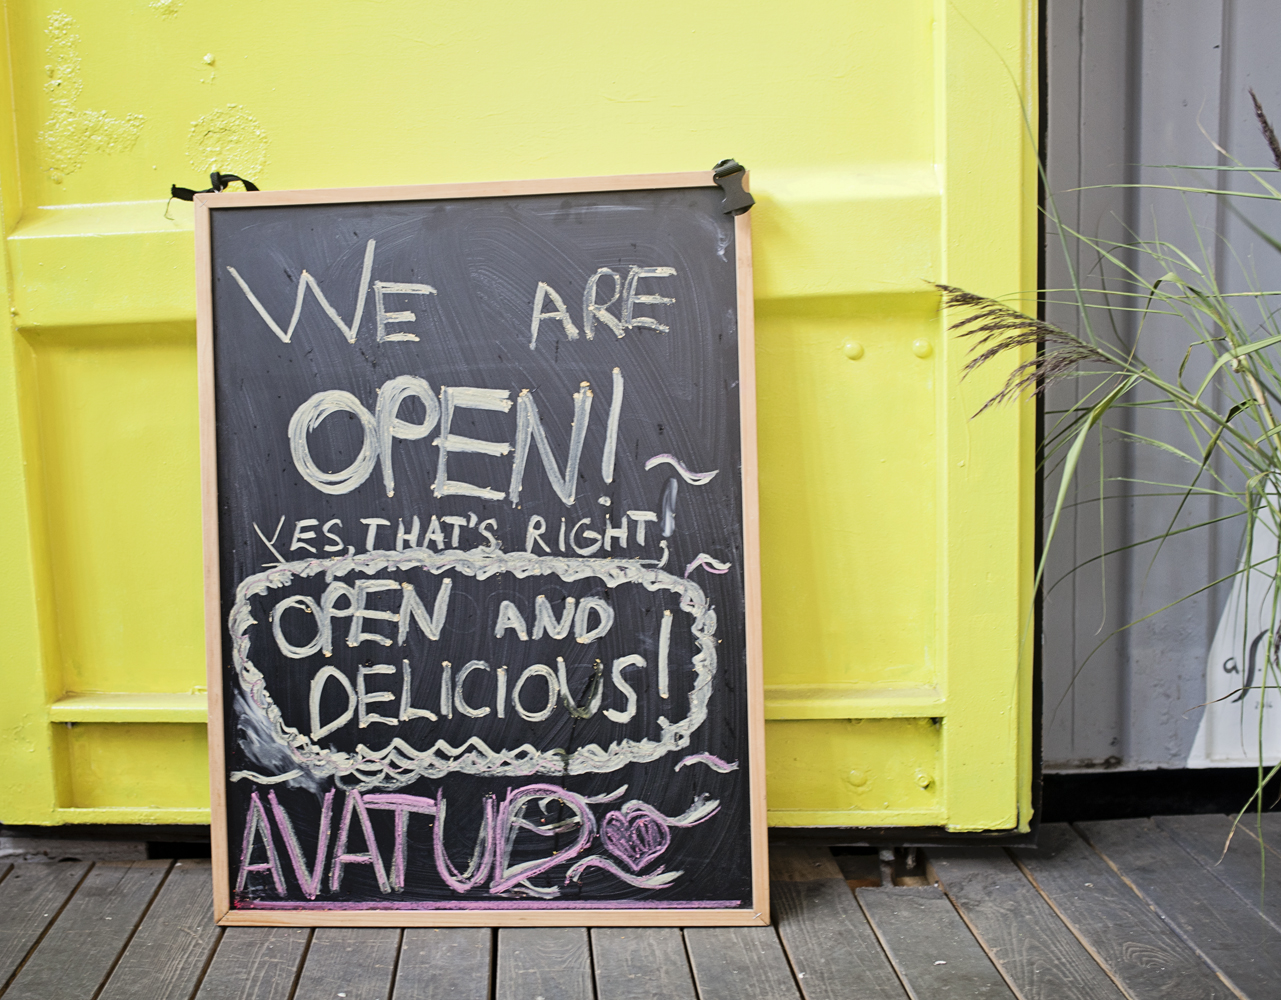 WE ARE
OPEN!
YES, THAT'S RIGHT,
OPEN AND
DELICIOUS!